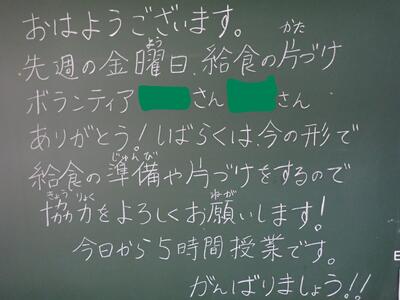 おはようございます。
先週の金曜日、給食の片づけ
ボランティア さん さん
ありがとう!しばらくは、今の形で
給食の準備や片づけをするので
協力をよろしくお願いします!
今日から5時間授業です。
がんばりましょう!!